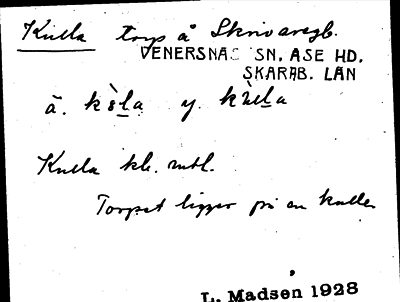 Kulla torp å Skrivaregb.
VENERSNÄS SN, ÅSE HD.
SKARAB. LÄN
ä. kòla y. kùlla
Kulla kk. mtl.
Torpet ligger på en kulle
L. Madsen 1928